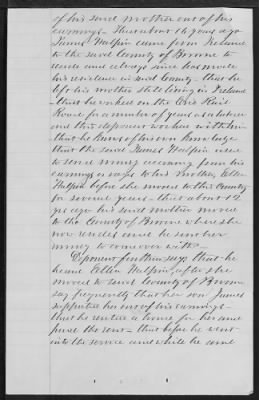 of his said mother out of his
earnings - That about 16 years ago
James Halpin came from Ireland
to the said County of Broome to
reside and always since has made
his residence in said County - that he
left his mother still living in Ireland
- that he worked on the Erie Rail
Road for a number of years as a laborer
and this deponent worked with him
that he knows of his own knowledge
that the said James Halpin used
to send money accruing from his
earnings or wages to his Mother, Ellen
Halpin before she moved to this County
for several years - that about 12
yrs ago his said mother moved
to the County of Broome where she
now resides and he sent her
money to come over with -
Deponent further says that he
heard Ellen Halpin, after she
moved to said County of Broome
say frequently that her son James
supported her out of his earnings -
that he rented a house for her and
paid the rent - that before he went
into the service and while he was